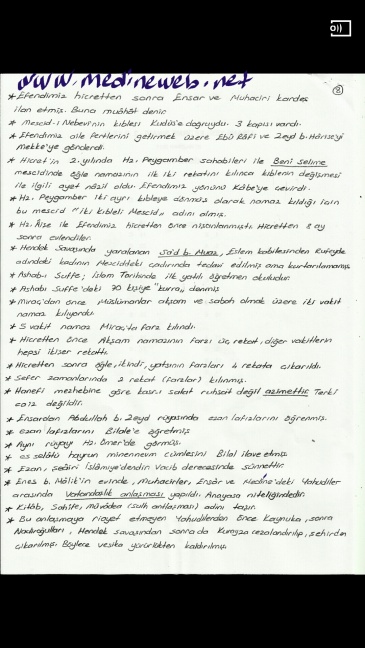 www.medineweb.net
8
* Efendimiz hicretten sonra Ensar ve Muhaciri kardeş
ilan etmiş. Buna muâhât denir.
* Mescid-i Nebevi'nin kıblesi Kudüs'e doğruydu. 3 kapısı vardı.
* Efendimiz aile fertlerini getirmek üzere Ebû Râfi ve Zeyd b. Hârise'yi
Mekke'ye gönderdi.
* Hicret'in 2. yılında Hz. Peygamber sahabileri ile Beni Selime
mescidinde öğle namazının ilk iki rekatını kılınca kıblenin değişmesi
ile ilgili ayet nâzil oldu. Efendimiz yönünü Kâbe'ye çevirdi.
* Hz. Peygamber iki ayrı kıbleye dönmüş olarak namaz kıldığı için
bu mescid "iki kıbleli Mescid" adını almış.
* Hz. Âişe ile Efendimiz hicretten önce nişanlanmıştı. Hicretten 8 ay
sonra evlendiler.
* Hendek Savaşında yaralanan Sa'd b. Muaz, Eslem kabilesinden Rufeyde
adındaki kadının Mescitteki çadırında tedavi edilmiş ama kurtarılamamış.
* Ashab-ı Suffe; İslam Tarihinde ilk yatılı öğretmen okuludur.
* Ashabı Suffe'deki 70 kişiye "kurra" denmiş
* Miraç'dan önce Müslümanlar akşam ve sabah olmak üzere iki vakit
namaz kılıyordu.
* 5 vakit namaz Miraç'ta farz kılındı.
* Hicretten önce Akşam namazının farzı üç rekat, diğer vakitlerin
hepsi ikişer rekattı.
* Hicretten sonra öğle, ikindi, yatsının farzları 4 rekata çıkarıldı.
* Sefer zamanlarında 2 rekat (farzlar) kılınmış.
* Hanefi mezhebine göre kasrı salat ruhsat değil azimettir. Terki
caiz değildir.
* Ensardan Abdullah b. Zeyd rüyasında ezan lafızlarını öğrenmiş.
* Ezan lafızlarını Bilale'e öğretmiş
* Aynı rüyayı Hz. Ömer'de görmüş.
* es salâtü hayrun minennevm cümlesini Bilal ilave etmiş.
* Ezan, şeâiri İslâmiye'dendir. Vacib derecesinde sünnettir.
* Enes b. Mâlik'in evinde, Muhacirler, Ensâr ve Medine'deki Yahudiler
arasında Vatandaşlık anlaşması yapıldı. Anayasa niteliğindedir.
* Kitâb, Sahife, müvâdea (sulh antlaşması) adını taşır.
* Bu anlaşmaya riayet etmeyen Yahudilerden Önce Kaynuka, sonra
Nadiroğulları, Hendek savaşından sonra da Kurayza cezalandırılıp, şehirden
çıkarılmış. Böylece vesika yürürlükten kaldırılmış.